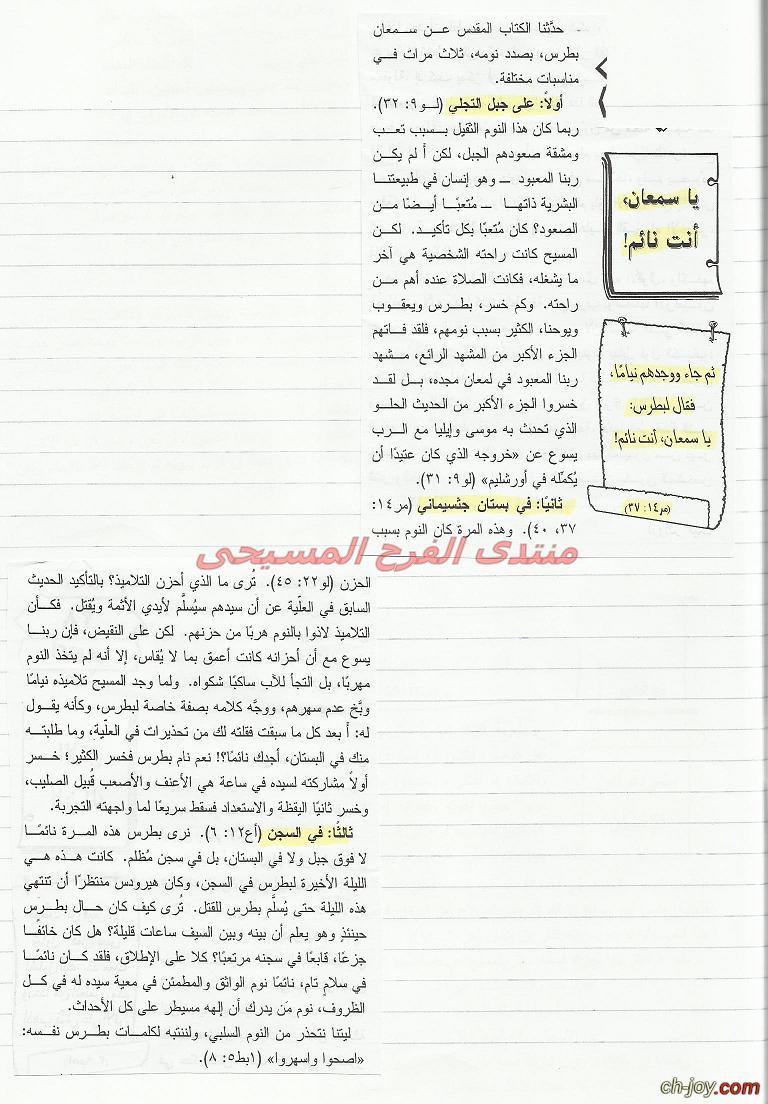 يا سمعان،
أنت نائم!
ثم جاء ووجدهم نيامًا،
فقال لبطرس:
يا سمعان، أنت نائم!
(مر١٤: ٣٧)
حدَّثنا الكتاب المقدس عن سمعان
بطرس، بصدد نومه، ثلاث مرات في
مناسبات مختلفة.
أولاً: على جبل التجلي (لو٩: ٣٢).
ربما كان هذا النوم الثقيل بسبب تعب
ومشقة صعودهم الجبل، لكن أ لم يكن
ربنا المعبود ــ وهو إنسان في طبيعتنا
البشرية ذاتها ــ مُتعبًا أيضًا من
الصعود؟ كان مُتعبًا بكل تأكيد. لكن
المسيح كانت راحته الشخصية هي آخر
ما يشغله، فكانت الصلاة عنده أهم من
راحته. وكم خسر، بطرس ويعقوب
ويوحنا، الكثير بسبب نومهم، فلقد فاتهم
الجزء الأكبر من المشهد الرائع، مشهد
ربنا المعبود في لمعان مجده، بل لقد
خسروا الجزء الأكبر من الحديث الحلو
الذي تحدث به موسى وإيليا مع الرب
يسوع عن «خروجه الذي كان عتيدًا أن
يُكمِّله في أورشليم» (لو٩: ٣١).
ثانيًا: في بستان جثسيماني (مر١٤:
٣٧، ٤٠). وهذه المرة كان النوم بسبب
منتدى الفرح المسيحى
الحزن (لو٢٢: ٤٥). تُرى ما الذي أحزن التلاميذ؟ بالتأكيد الحديث
السابق في العلّية عن أن سيدهم سيُسلَّم لأيدي الأثمة ويُقتل. فكأن
التلاميذ لاذوا بالنوم هربًا من حزنهم. لكن على النقيض، فإن ربنا
يسوع مع أن أحزانه كانت أعمق بما لا يُقاس، إلا أنه لم يتخذ النوم
مهربًا، بل التجأ للآب ساكبًا شكواه. ولما وجد المسيح تلاميذه نيامًا
وبَّخ عدم سهرهم، ووجَّه كلامه بصفة خاصة لبطرس، وكأنه يقول
له: أ بعد كل ما سبقت فقلته لك من تحذيرات في العلّية، وما طلبته
منك في البستان، أجدك نائمًا؟! نعم نام بطرس فخسر الكثير؛ خسر
أولاً مشاركته لسيده في ساعة هي الأعنف والأصعب قُبيل الصليب،
وخسر ثانيًا اليقظة والاستعداد فسقط سريعًا لما واجهته التجربة.
ثالثًا: في السجن (أع١٢: ٦). نرى بطرس هذه المرة نائمًا
لا فوق جبل ولا في البستان، بل في سجن مُظلم. كانت هذه هي
الليلة الأخيرة لبطرس في السجن، وكان هيرودس منتظرًا أن تنتهي
هذه الليلة حتى يُسلَّم بطرس للقتل. تُرى كيف كان حال بطرس
حينئذٍ وهو يعلم أن بينه وبين السيف ساعات قليلة؟ هل كان خائفًا
جزعًا، قابعًا في سجنه مرتعبًا؟ كلا على الإطلاق، فلقد كان نائمًا
في سلامٍ تام، نائمًا نوم الواثق والمطمئن في معية سيده له في كل
الظروف، نوم مَن يدرك أن إلهه مسيطر على كل الأحداث.
ليتنا نتحذر من النوم السلبي، ولننتبه لكلمات بطرس نفسه:
«اصحوا واسهروا» (١بط٥: ٨).
ch-joy.com